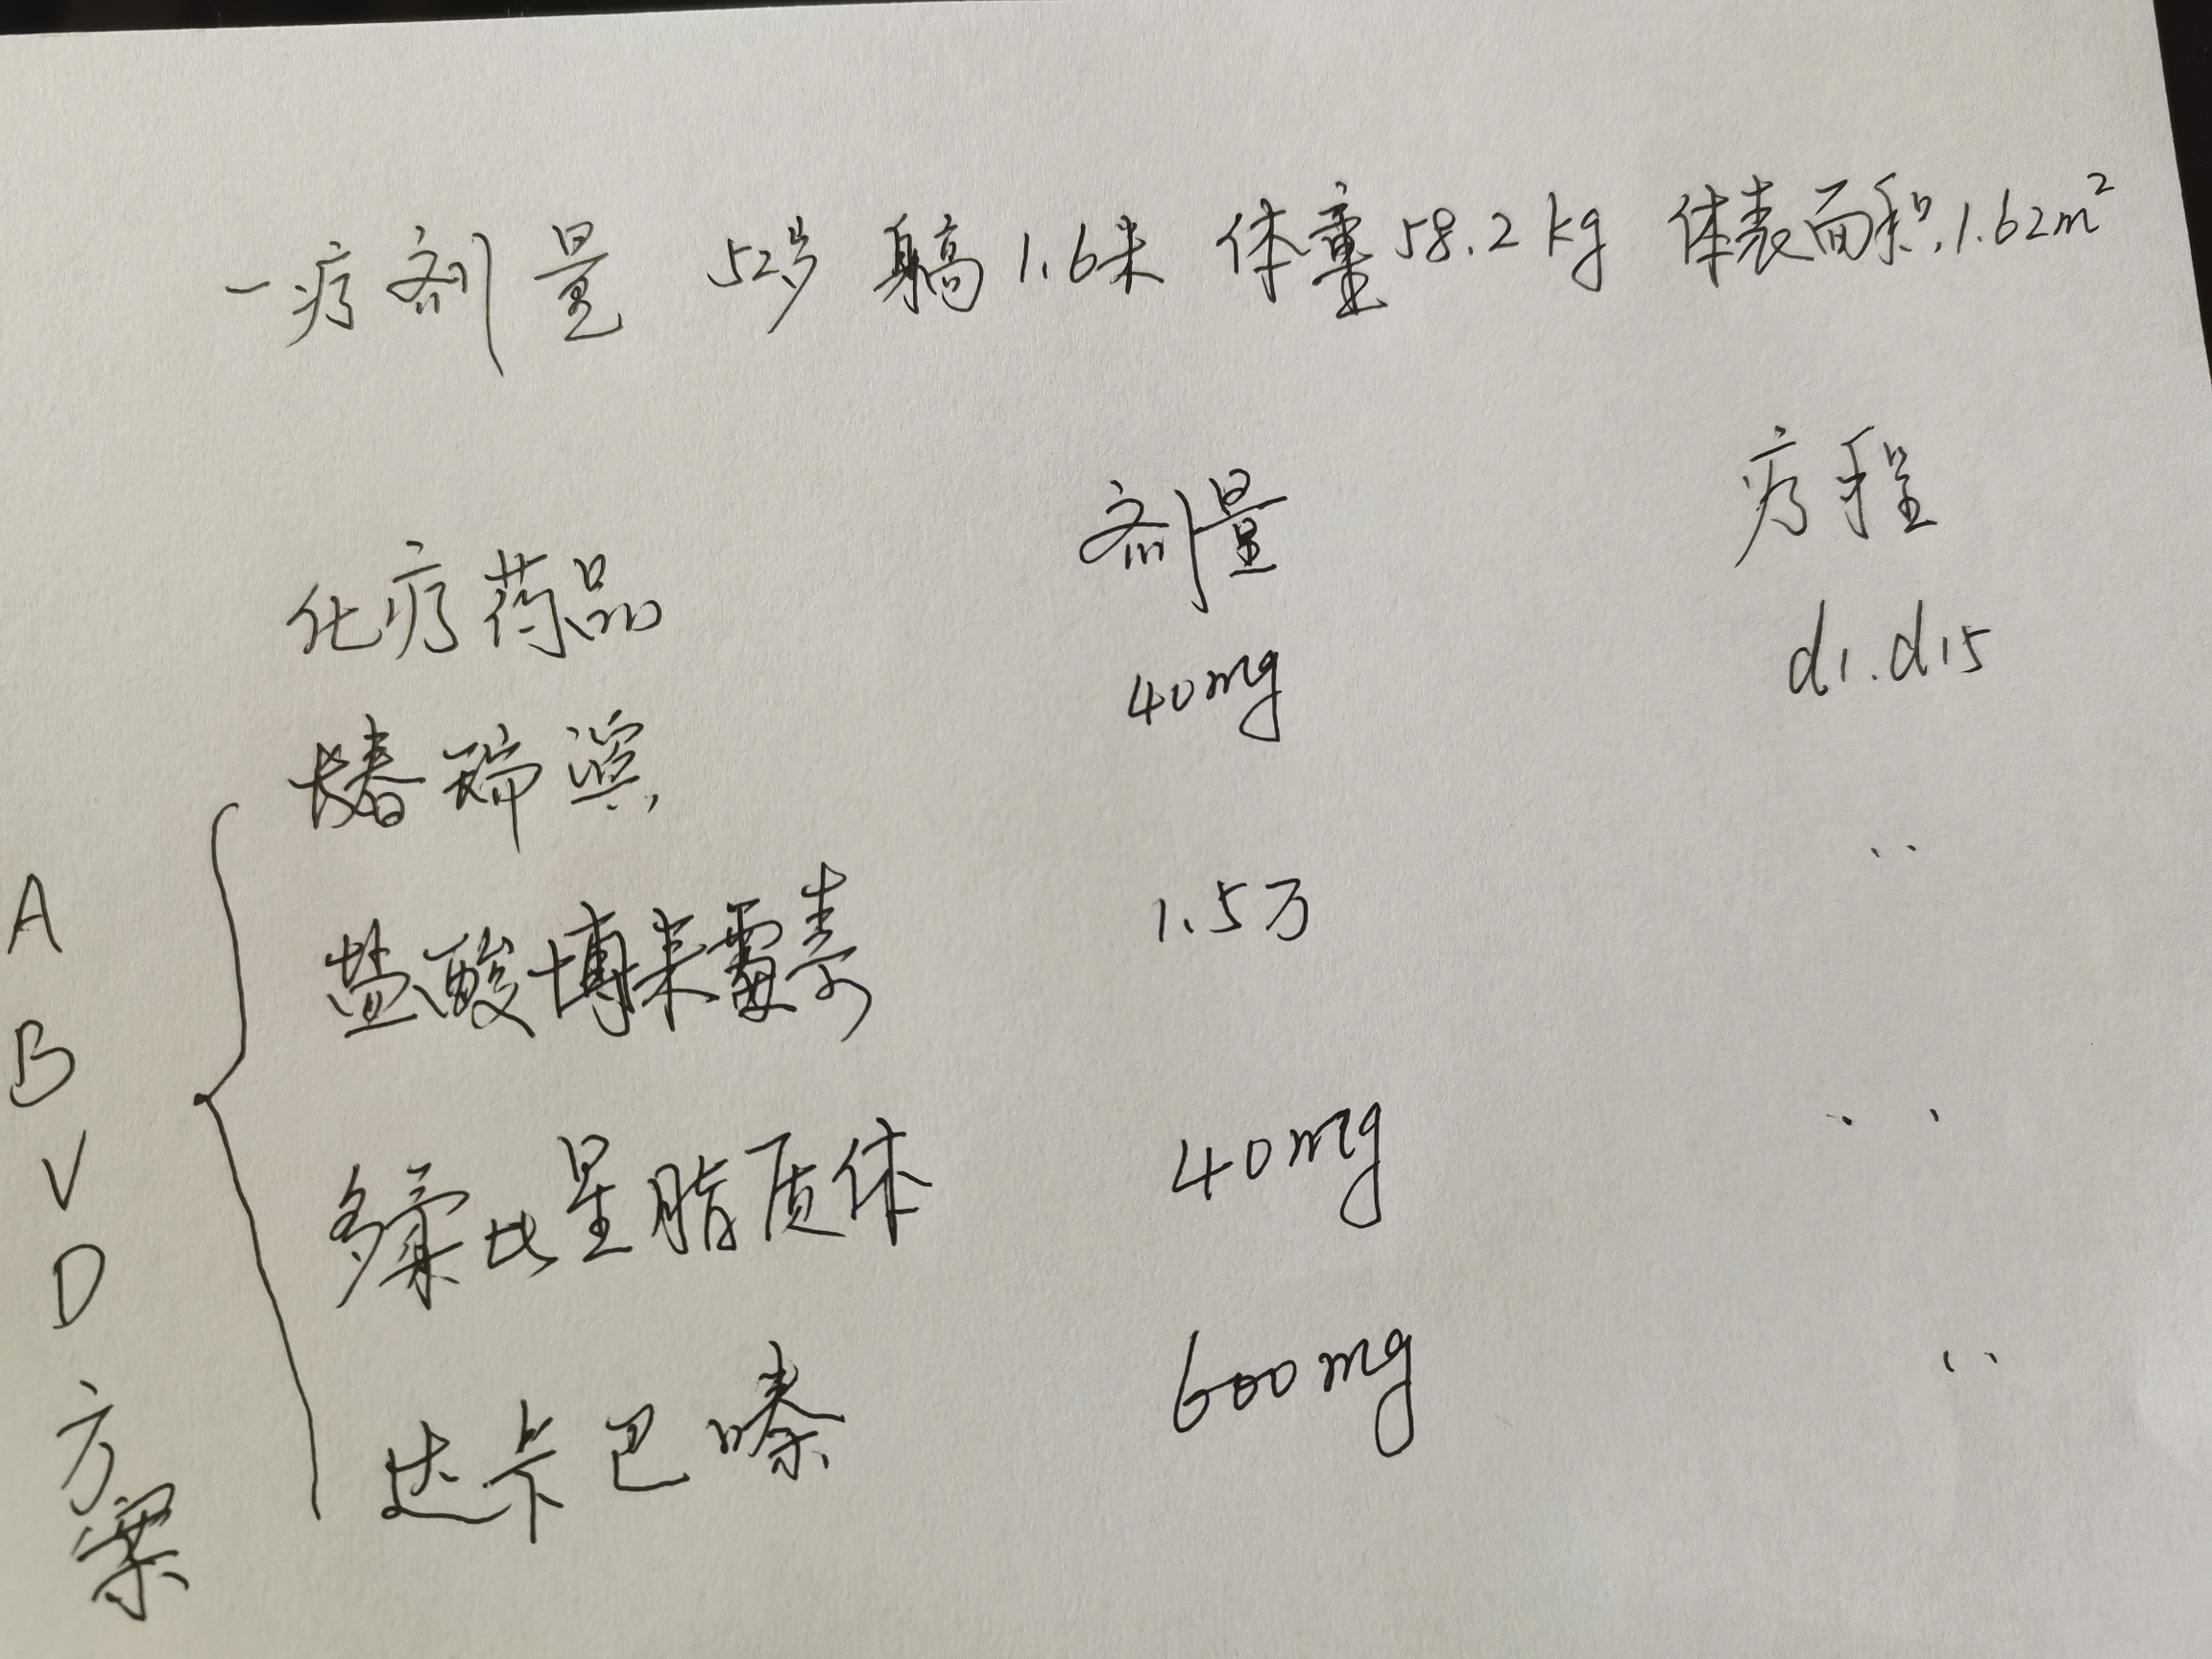 一疗剂量 52岁 身高1.6米 体重58.2kg 体表面积.1.62m²
化疗药品 剂量 疗程
长春瑞滨 40mg d1.d15
盐酸博来霉素 1.5万 ..
多柔比星脂质体 40mg ..
达卡巴嗪 600mg ..
ABVD方案